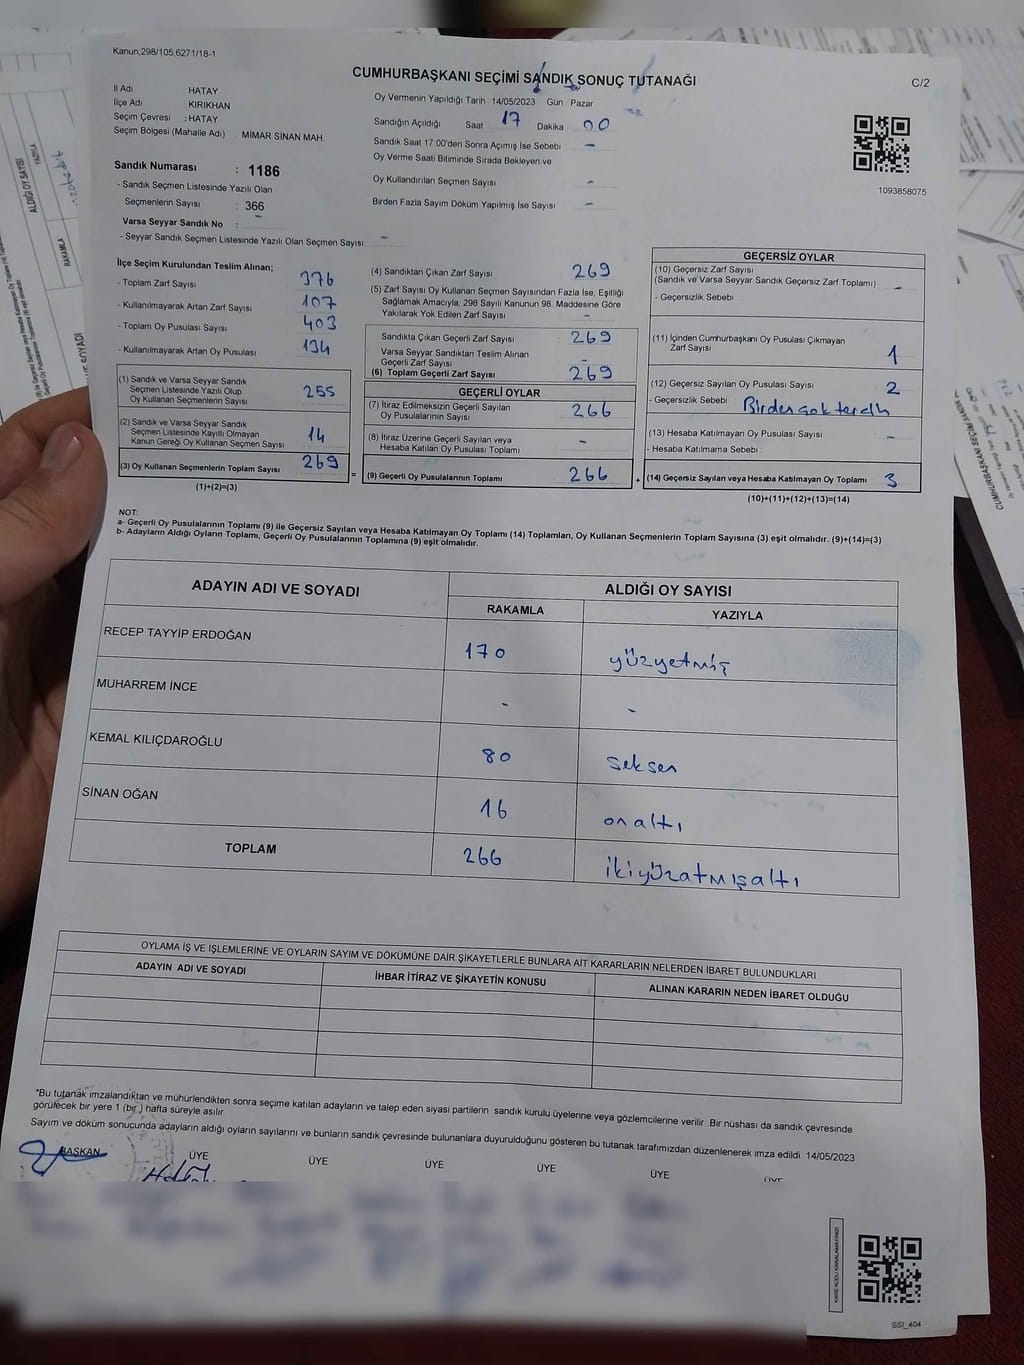 Kanun;298/105,6271/18-1
CUMHURBAŞKANI SEÇİMİ SANDIK SONUÇ TUTANAĞI
C/2
İl Adı HATAY
İlçe Adı KIRIKHAN
Seçim Çevresi : HATAY
Seçim Bölgesi (Mahalle Adı) MİMAR SİNAN MAH
Oy Vermenin Yapıldığı Tarih 14/05/2023 Gün Pazar
Sandığın Açıldığı Saat 17 Dakika 00
Sandık Saat 17:00'den Sonra Açımış İse Sebebi -
Oy Verme Saati Bitiminde Sırada Bekleyen ve
Oy Kullandırılan Seçmen Sayısı -
Birden Fazla Sayım Döküm Yapılmış İse Sayısı -
1093858075
Sandık Numarası : 1186
- Sandık Seçmen Listesinde Yazılı Olan
Seçmenlerin Sayısı : 366
Varsa Seyyar Sandık No : -
- Seyyar Sandık Seçmen Listesinde Yazılı Olan Seçmen Sayısı -
İlçe Seçim Kurulundan Teslim Alınan;
- Toplam Zarf Sayısı 376
- Kullanılmayarak Artan Zarf Sayısı 107
- Toplam Oy Pusulası Sayısı 403
- Kullanılmayarak Artan Oy Pusulası 134
(1) Sandık ve Varsa Seyyar Sandık
Seçmen Listesinde Yazılı Olup
Oy Kullanan Seçmenlerin Sayısı 255
(2) Sandık ve Varsa Seyyar Sandık
Seçmen Listesinde Kayıtlı Olmayan
Kanun Gereği Oy Kullanan Seçmen Sayısı 14
(3) Oy Kullanan Seçmenlerin Toplam Sayısı 269
(1)+(2)=(3)
(4) Sandıktan Çıkan Zarf Sayısı 269
(5) Zarf Sayısı Oy Kullanan Seçmen Sayısından Fazla İse, Eşitliği
Sağlamak Amacıyla, 298 Sayılı Kanunun 98. Maddesine Göre
Yakılarak Yok Edilen Zarf Sayısı -
Sandıkta Çıkan Geçerli Zarf Sayısı 269
Varsa Seyyar Sandıktan Teslim Alınan
Geçerli Zarf Sayısı -
(6) Toplam Geçerli Zarf Sayısı 269
GEÇERLİ OYLAR
(7) İtiraz Edilmeksizin Geçerli Sayılan
Oy Pusulalarının Sayısı 266
(8) İtiraz Üzerine Geçerli Sayılan veya
Hesaba Katılan Oy Pusulası Toplamı -
= (9) Geçerli Oy Pusulalarının Toplamı 266 +
GEÇERSİZ OYLAR
(10) Geçersiz Zarf Sayısı
(Sandık ve Varsa Seyyar Sandık Geçersiz Zarf Toplamı) -
- Geçersizlik Sebebi
(11) İçinden Cumhurbaşkanı Oy Pusulası Çıkmayan
Zarf Sayısı 1
(12) Geçersiz Sayılan Oy Pusulası Sayısı 2
- Geçersizlik Sebebi Birden çok tercih
(13) Hesaba Katılmayan Oy Pusulası Sayısı -
- Hesaba Katılmama Sebebi
(14) Geçersiz Sayılan veya Hesaba Katılmayan Oy Toplamı 3
(10)+(11)+(12)+(13)=(14)
NOT:
a- Geçerli Oy Pusulalarının Toplamı (9) ile Geçersiz Sayılan veya Hesaba Katılmayan Oy Toplamı (14) Toplamları, Oy Kullanan Seçmenlerin Toplam Sayısına (3) eşit olmalıdır. (9)+(14)=(3)
b- Adayların Aldığı Oyların Toplamı, Geçerli Oy Pusulalarının Toplamına (9) eşit olmalıdır.
ADAYIN ADI VE SOYADI ALDIĞI OY SAYISI
RAKAMLA YAZIYLA
RECEP TAYYİP ERDOĞAN 170 yüzyetmiş
MUHARREM İNCE - -
KEMAL KILIÇDAROĞLU 80 seksen
SİNAN OĞAN 16 onaltı
TOPLAM 266 ikiyüzatmışaltı
OYLAMA İŞ VE İŞLEMLERİNE VE OYLARIN SAYIM VE DÖKÜMÜNE DAİR ŞİKAYETLERLE BUNLARA AİT KARARLARIN NELERDEN İBARET BULUNDUKLARI
ADAYIN ADI VE SOYADI İHBAR İTİRAZ VE ŞİKAYETİN KONUSU ALINAN KARARIN NEDEN İBARET OLDUĞU
*Bu tutanak imzalandıktan ve mühürlendikten sonra seçime katılan adayların ve talep eden siyasi partilerin sandık kurulu üyelerine veya gözlemcilerine verilir. Bir nüshası da sandık çevresinde
görülecek bir yere 1 (bir) hafta süreyle asılır
Sayım ve döküm sonucunda adayların aldığı oyların sayılarını ve bunların sandık çevresinde bulunanlara duyurulduğunu gösteren bu tutanak tarafımızdan düzenlenerek imza edildi. 14/05/2023
BAŞKAN ÜYE ÜYE ÜYE ÜYE ÜYE ÜYE
KARE KODU KARALAMAYINIZ!
SSİ_404